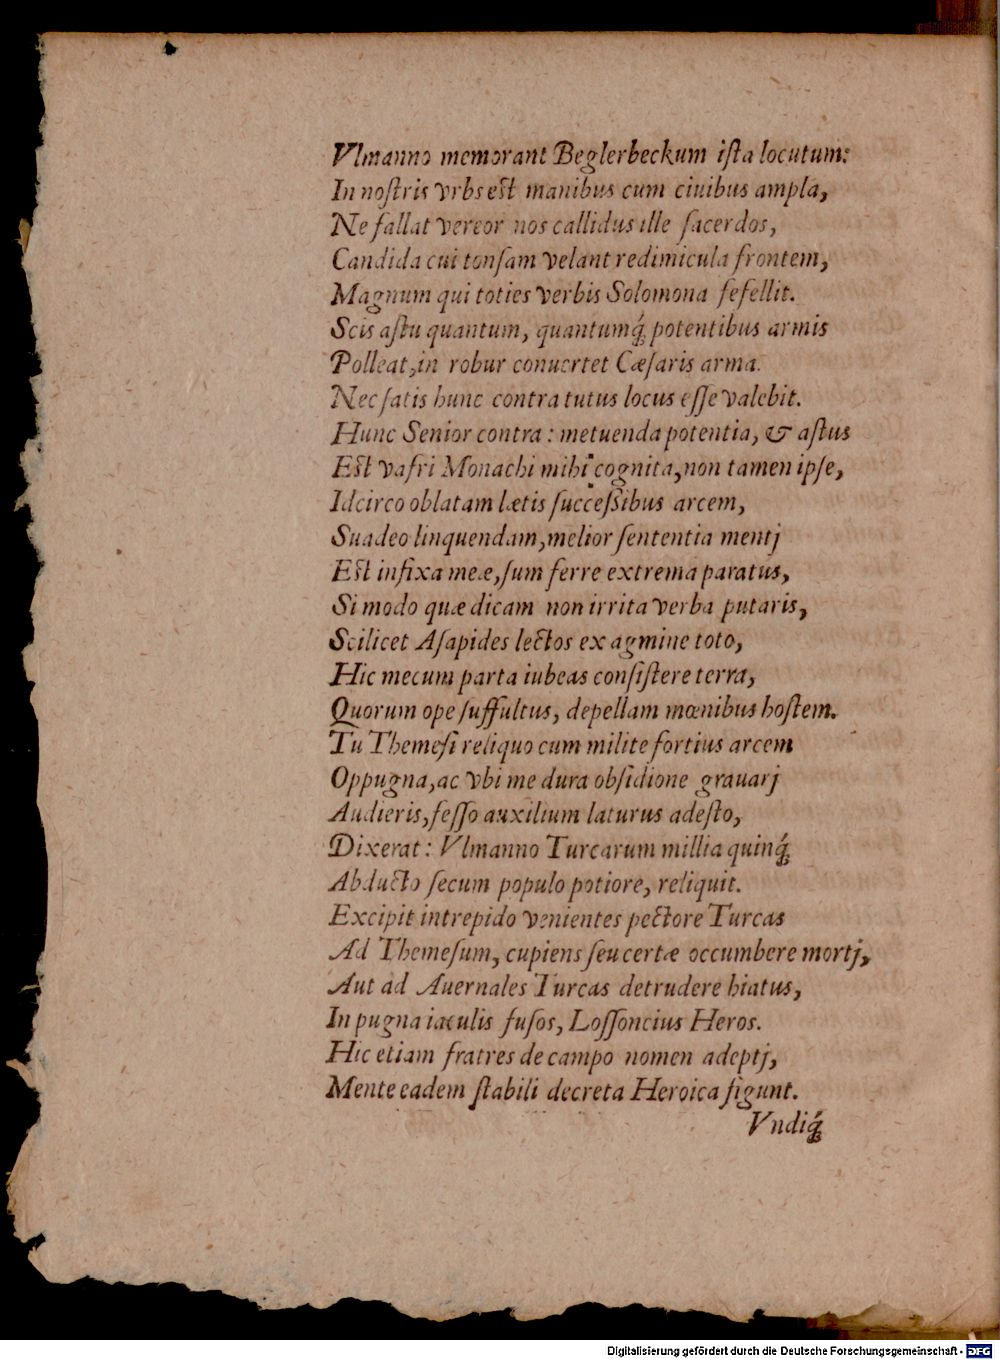 Vlmanno memorant Beglerbeckum iſta locutum:
In noſtris vrbs eſt manibus cum ciuibus ampla,
Ne fallat vereor nos callidus ille ſacerdos,
Candida cui tonſam velant redimicula frontem,
Magnum qui toties verbis Solomona fefellit.
Scis aſtu quantum, quantumq́; potentibus armis
Polleat, in robur conuertet Cæſaris arma.
Nec ſatis hunc contra tutus locus eſſe valebit.
Hunc Senior contra: metuenda potentia, & aſtus
Eſt vafri Monachi mihi cognita, non tamen ipſe,
Idcirco oblatam lætis ſucceſsibus arcem,
Suadeo linquendam, melior ſententia mentj
Eſt infixa meæ, ſum ferre extrema paratus,
Si modo quæ dicam non irrita verba putaris,
Scilicet Aſapides lectos ex agmine toto,
Hic mecum parta iubeas conſiſtere terra,
Quorum ope ſuffultus, depellam mœnibus hoſtem.
Tu Themeſi reliquo cum milite fortius arcem
Oppugna, ac vbi me dura obſidione grauarj
Audieris, feſſo auxilium laturus adeſto,
Dixerat: Vlmanno Turcarum millia quinq́;
Abducto ſecum populo potiore, reliquit.
Excipit intrepido venientes pectore Turcas
Ad Themeſum, cupiens ſeu certæ occumbere mortj,
Aut ad Auernales Turcas detrudere hiatus,
In pugna iaculis fuſos, Loſſoncius Heros.
Hic etiam fratres de campo nomen adeptj,
Mente eadem ſtabili decreta Heroica figunt.
Vndiq́;
Digitalisierung gefördert durch die Deutsche Forschungsgemeinschaft - DFG